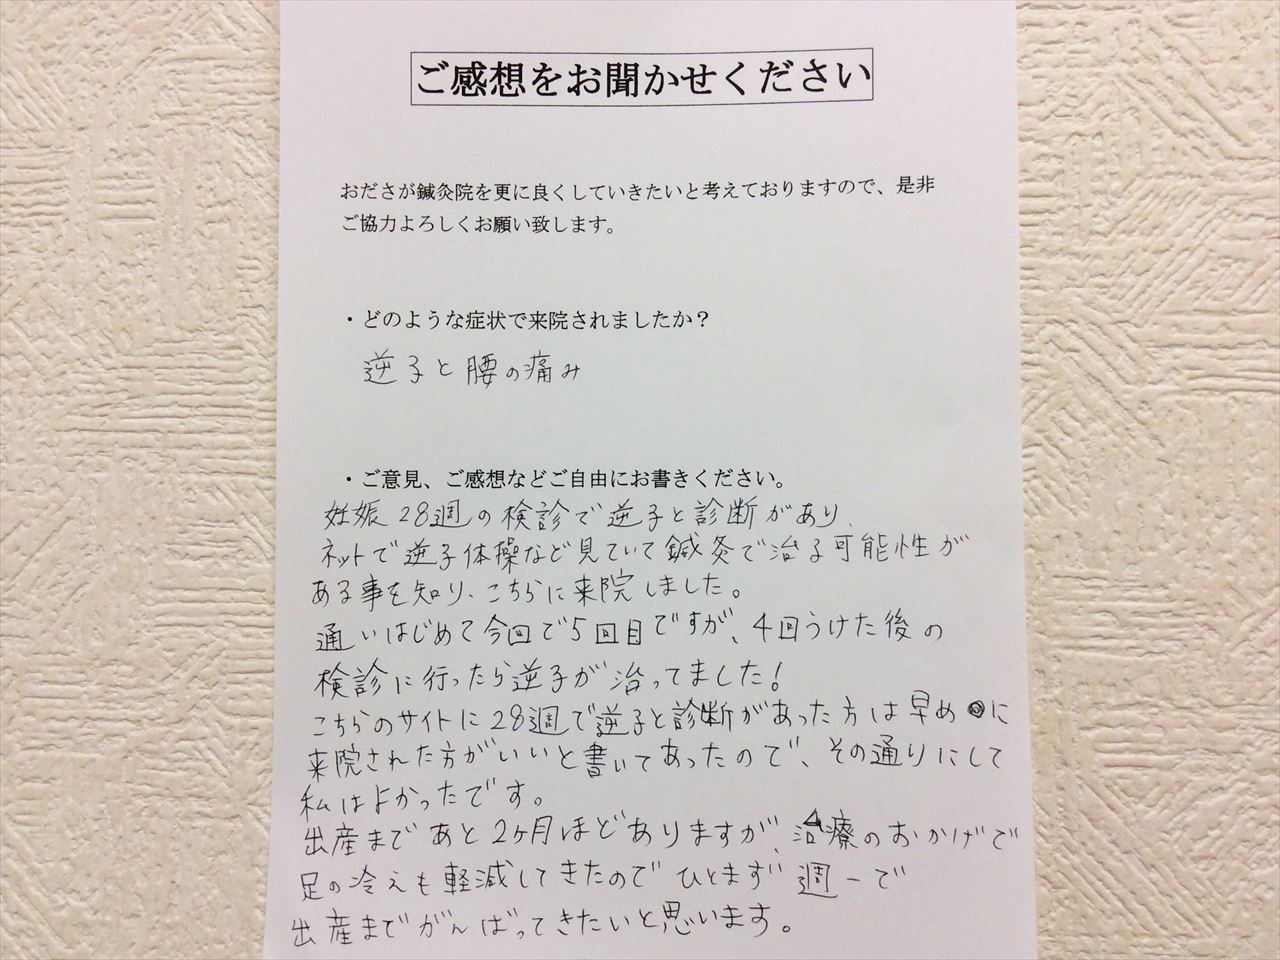 ご感想をお聞かせください
おださが鍼灸院を更に良くしていきたいと考えておりますので、是非
ご協力よろしくお願い致します。
・どのような症状で来院されましたか？
逆子と腰の痛み
・ご意見、ご感想などご自由にお書きください。
妊娠28週の検診で逆子と診断があり、
ネットで逆子体操など見ていて鍼灸で治る可能性が
ある事を知り、こちらに来院しました。
通いはじめて今回で5回目ですが、4回うけた後の
検診に行ったら逆子が治ってました!
こちらのサイトに28週で逆子と診断があった方は早めに
来院された方がいいと書いてあったので、その通りにして
私はよかったです。
出産まであと2ヶ月ほどありますが、治療のおかげで
足の冷えも軽減してきたのでひとまず週一で
出産までがんばってきたいと思います。